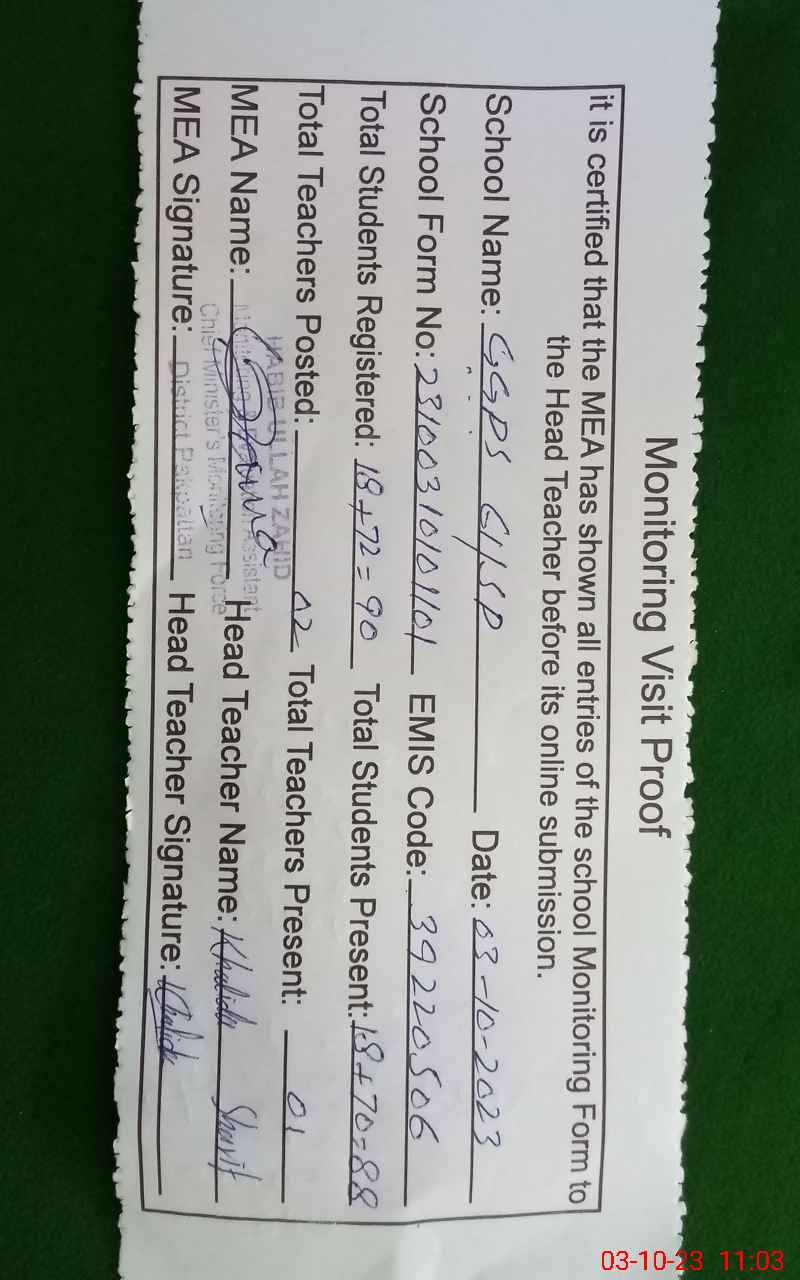 Monitoring Visit Proof
it is certified that the MEA has shown all entries of the school Monitoring Form to
the Head Teacher before its online submission.
School Name: GGPS 61/SP Date: 03-10-2023
School Form No: 23100310101101 EMIS Code: 39220506
Total Students Registered: 18+72=90 Total Students Present: 18+70=88
Total Teachers Posted: 02 Total Teachers Present: 01
HABIB ULLAH ZAHID
Monitoring Assistant
MEA Name: Head Teacher Name: Khalida Sharif
Chief Minister's Monitoring Force
MEA Signature: District Pakpattan Head Teacher Signature: Khalida
03-10-23 11:03